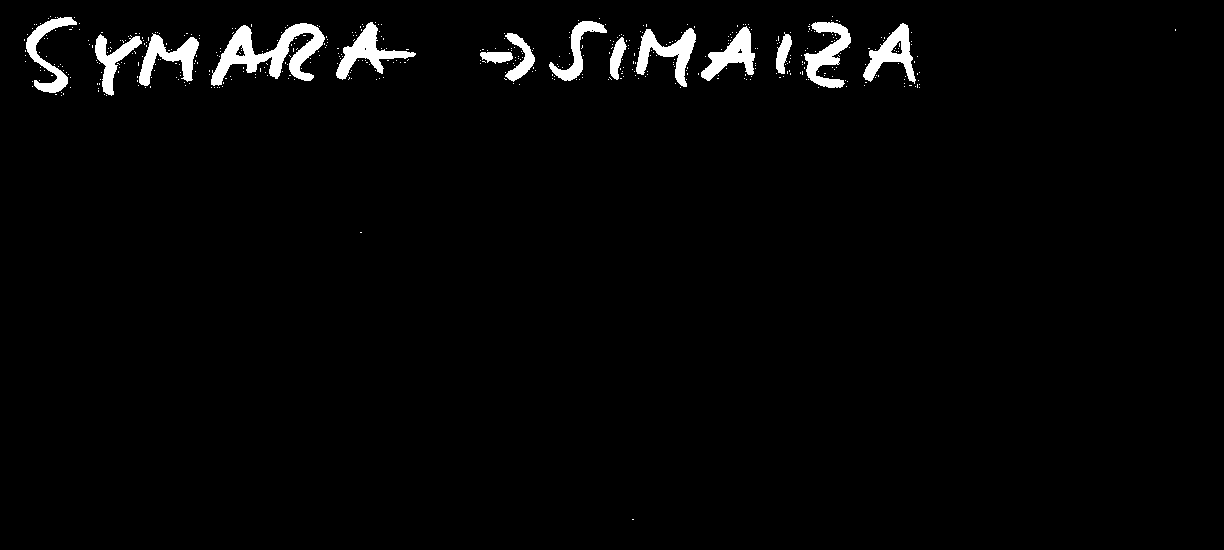 SYMARA → SIMAIZA